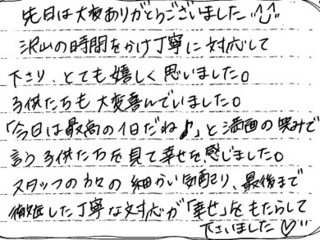 先日は大変ありがとうございました
沢山の時間をかけ丁寧に対応して
下さり、とても嬉しく思いました。
子供たちも大変喜んでいました。
「今日は最高の1日だね♪」と満面の笑みで
言う子供たちを見て幸せを感じました。
スタッフの方々の細かい気配り、最後まで
徹底した丁寧な対応が「幸せ」をもたらして
下さいました♡